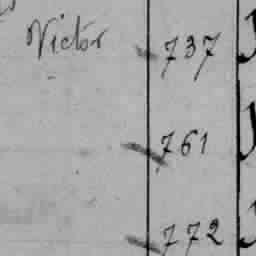 Victor 737
761
772